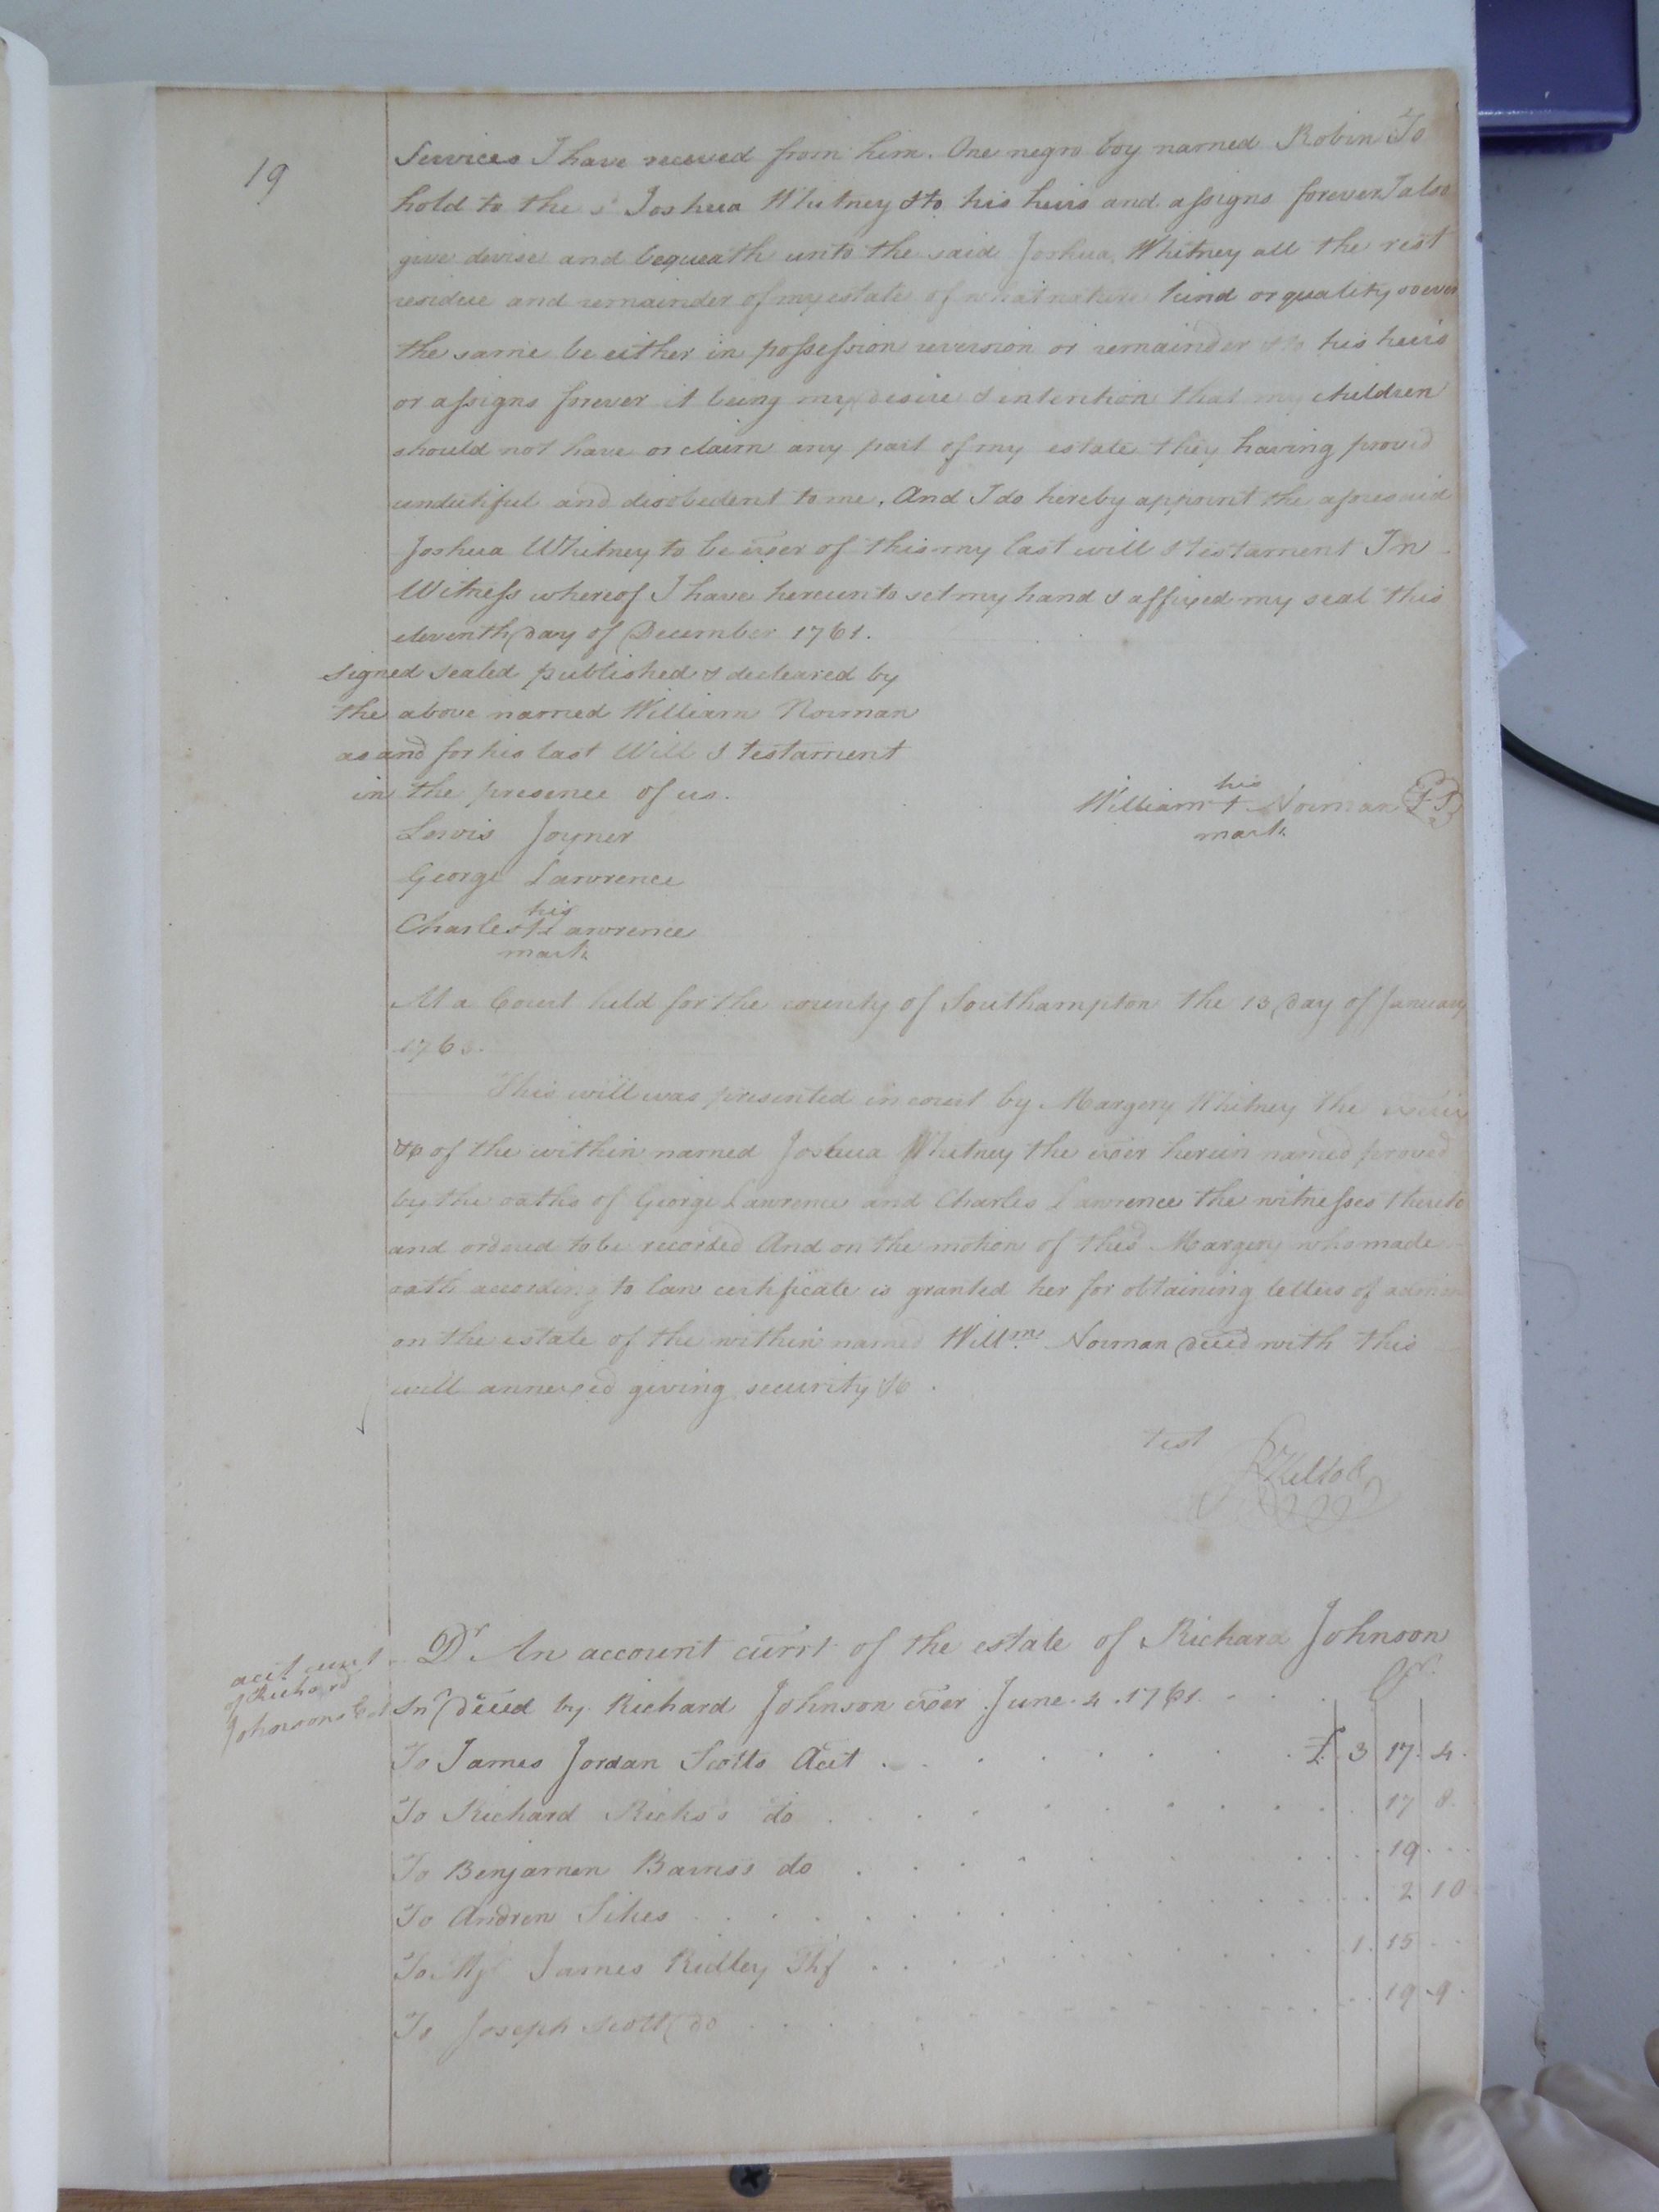 19
Services I have receved from him. One negro boy named Robin To
hold to the sd Joshua Whitney & to his heirs and assigns forever I also
give devise and bequeath unto the said Joshua Whitney all the rest
residue and remainder of my estate of what nature kind or quality soever
the same be either in possession reversion or remainder & to his heirs
or assigns forever it being my desire & intention that my children
should not have or claim any part of my estate they having proved
undutiful and disobedent to me. And I do hereby appoint the aforesaid
Joshua Whitney to be exer of this my last will & testament In
Witness whereof I have hereunto set my hand & affixed my seal this
eleventh day of December 1761.
signed sealed published & decleared by
the above named William Norman
as and for his last Will & testament
in the presence of us.
his
William + Norman
mark
Lewis Joyner
George Lawrence
his
Charles + Lawrence
mark
At a Court held for the county of Southampton the 13 day of January
This will was presented in court by Margery Whitney the
&c of the within named Joshua Whitney the exer herein named proved
by the oaths of George Lawrence and Charles Lawrence the witnesses thereto
and ordered to be recorded And on the motion of the sd Margery who made
oath according to law certificate is granted her for obtaining letters of
on the estate of the within named Willm. Norman deced with this
will annexed giving security &c.
test
acct curt
of Richard
Johnsons
Dr An account currt of the estate of Richard Johnson
Cr.
Snr deced by Richard Johnson exer June 4. 1761
To James Jordan Scotts Acct £ 3 17. 4.
To Richard Ricks's do 17 8.
To Benjamen Barnes's do 19
To Andrew Sikes 2 10
To James Ridley Shf 1. 15
To Joseph Scott do 19 9